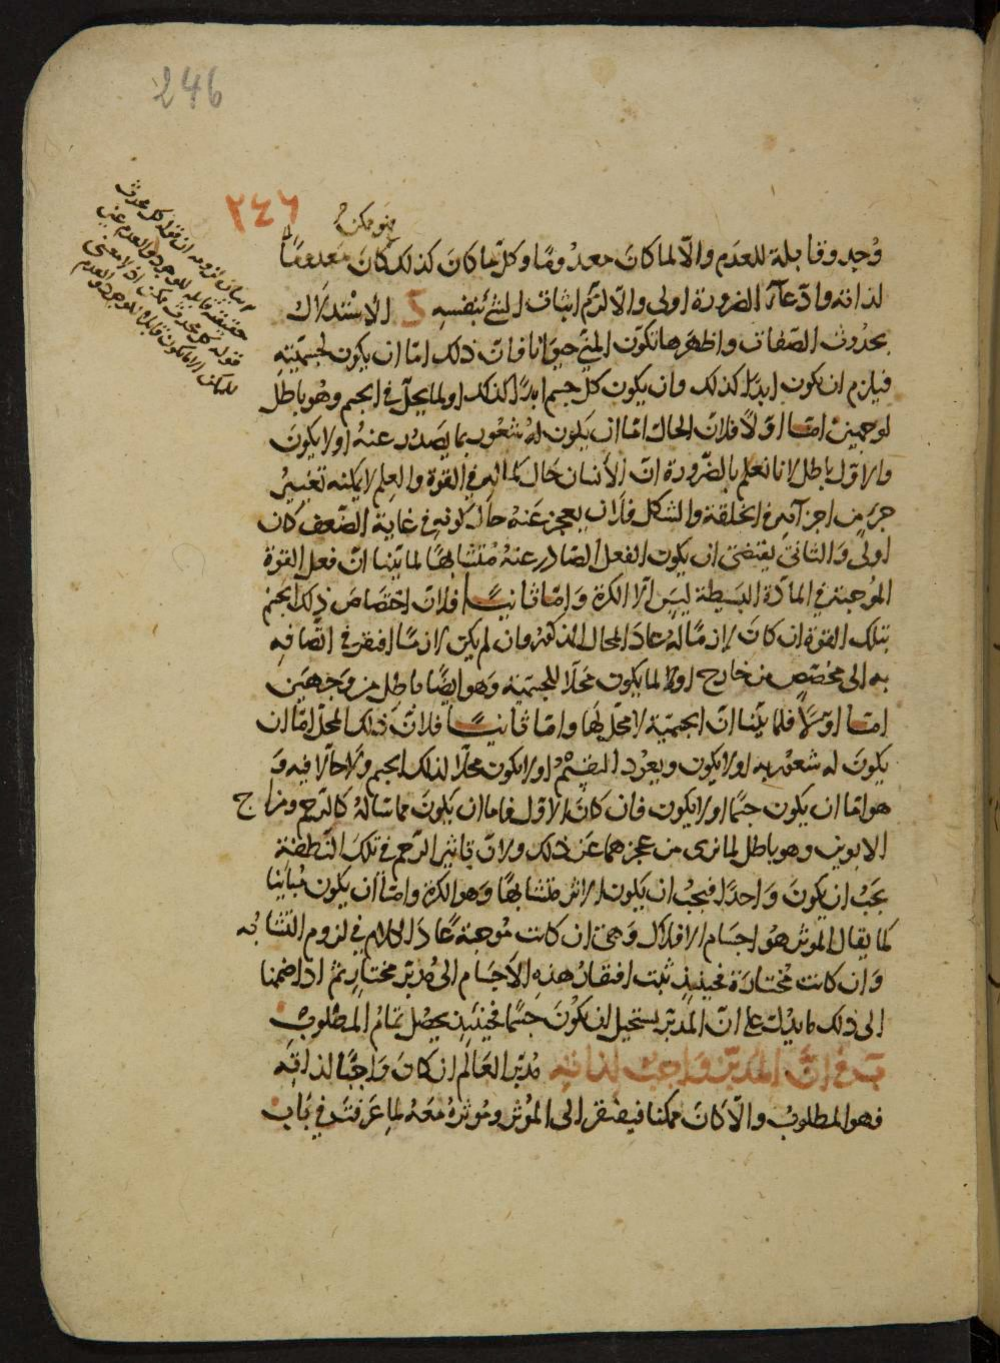 246
٢٤٦
فهو ممكن
وُجد وقابلة للعدَم والّا لما كانَ معدُومًا وكلّ ما كانَ كذلك كانَ معدومًا
لذاته وادّعآءُ الضرورة اولى والّا لزم اثبات الشئ بنفسهِ الاِسْتدلال
بحدُوث الصّفات واظهرها تكوّن المنىّ حيوانا فانّ ذلك امّا ان يكون لجسميّتهِ
فيلزم ان يكون ابدًا كذلك وان يكون كل جسم ابدًا كذلك او لما يحلّ فى الجسم وهُو باطل
لوجهين امّا اوّلًا فلانّ الحالّ امّا ان يكون لهُ شعُور بما يصدُر عنهُ او لا يكونَ
والاوّل باطل لانا نعلم بالضّرورة انّ الأنسان حَال كماله فى القوة والعِلم لا يمكنه تغييرُ
جزءٍ من اجزآئهِ فى الخلقة والشكل فلَان يعجز عَنهُ حالَ كونهِ فى غاية الضّعف كان
اولى وَالثانىْ يقتضى ان يكون الفعل الصّادر عنهُ مُتشابهًا لما بيّنا انّ فعل القوة
المُوجبة فى المادّة البَسِيطة ليسَ الّا الكرة وَامّا ثانيًا فلانّ اختصَاصَ ذلك الجسْم
بتلك القوة ان كانَ لازمًا لهُ عادَ المحال المذكور وان لم يكن لازمًا افتقر فى اتّصافهِ
به الى مخصّصٍ من خارج او لما يكون محَلًا للجسميّة وَهو ايضًا باطل من وَجهَين
امّا اوّلًا فلما بيّنا انّ الجسميّة لا محَلّ لهَا وامّا ثانيًا فلانّ ذلكَ المحلّ امّا ان
يكونَ له شعُور به او لا يكون ويعُود القِسْمُ او لا يكون محلّا لذلك الجسم وَلا حالّا فيه وَ
هو امّا ان يكون جسمًا او لا يكون فان كانَ الاوّل فاما ان يكونَ مماسّا لهُ كالرّحم ومزاج
الابوين وهو باطل لما نرى من عجزهما عَن ذلك ولانّ تاثير الرّحم فى تلكَ النّطفة
يجَبُ ان يكونَ وَاحدًا فيجبُ ان يكون الاثر متشابهًا وَهو الكرة وامّا ان يكون مُباينا
كما يقال المُوثر هُو اجسَام الافلاك وَهى ان كانت مُوجبة عَادَ الالزام فى لزوم التّشابُه
وَان كانت مُختارَة فحينئذٍ ثبت افتقارُ هذهِ الأجسَام الى مُدبّر مختار ثمّ اذا ضممنا
الى ذلك ما يدُلّ على انّ المدَبّر يستحيل ان يكُونَ جسمًا فحينئذٍ يحصُل تمامُ المطلُوب
بَ فى انّ المدَبّر وَاجبٌ لذاتهِ مُدبّر العَالم ان كانَ وَاجبًا لذاتهِ
فهو المطلوبُ والّا كانَ ممكنا فيفتقر الى المُوثر ومُوثرهُ معَهُ لما عَرفتَ فى بَاب